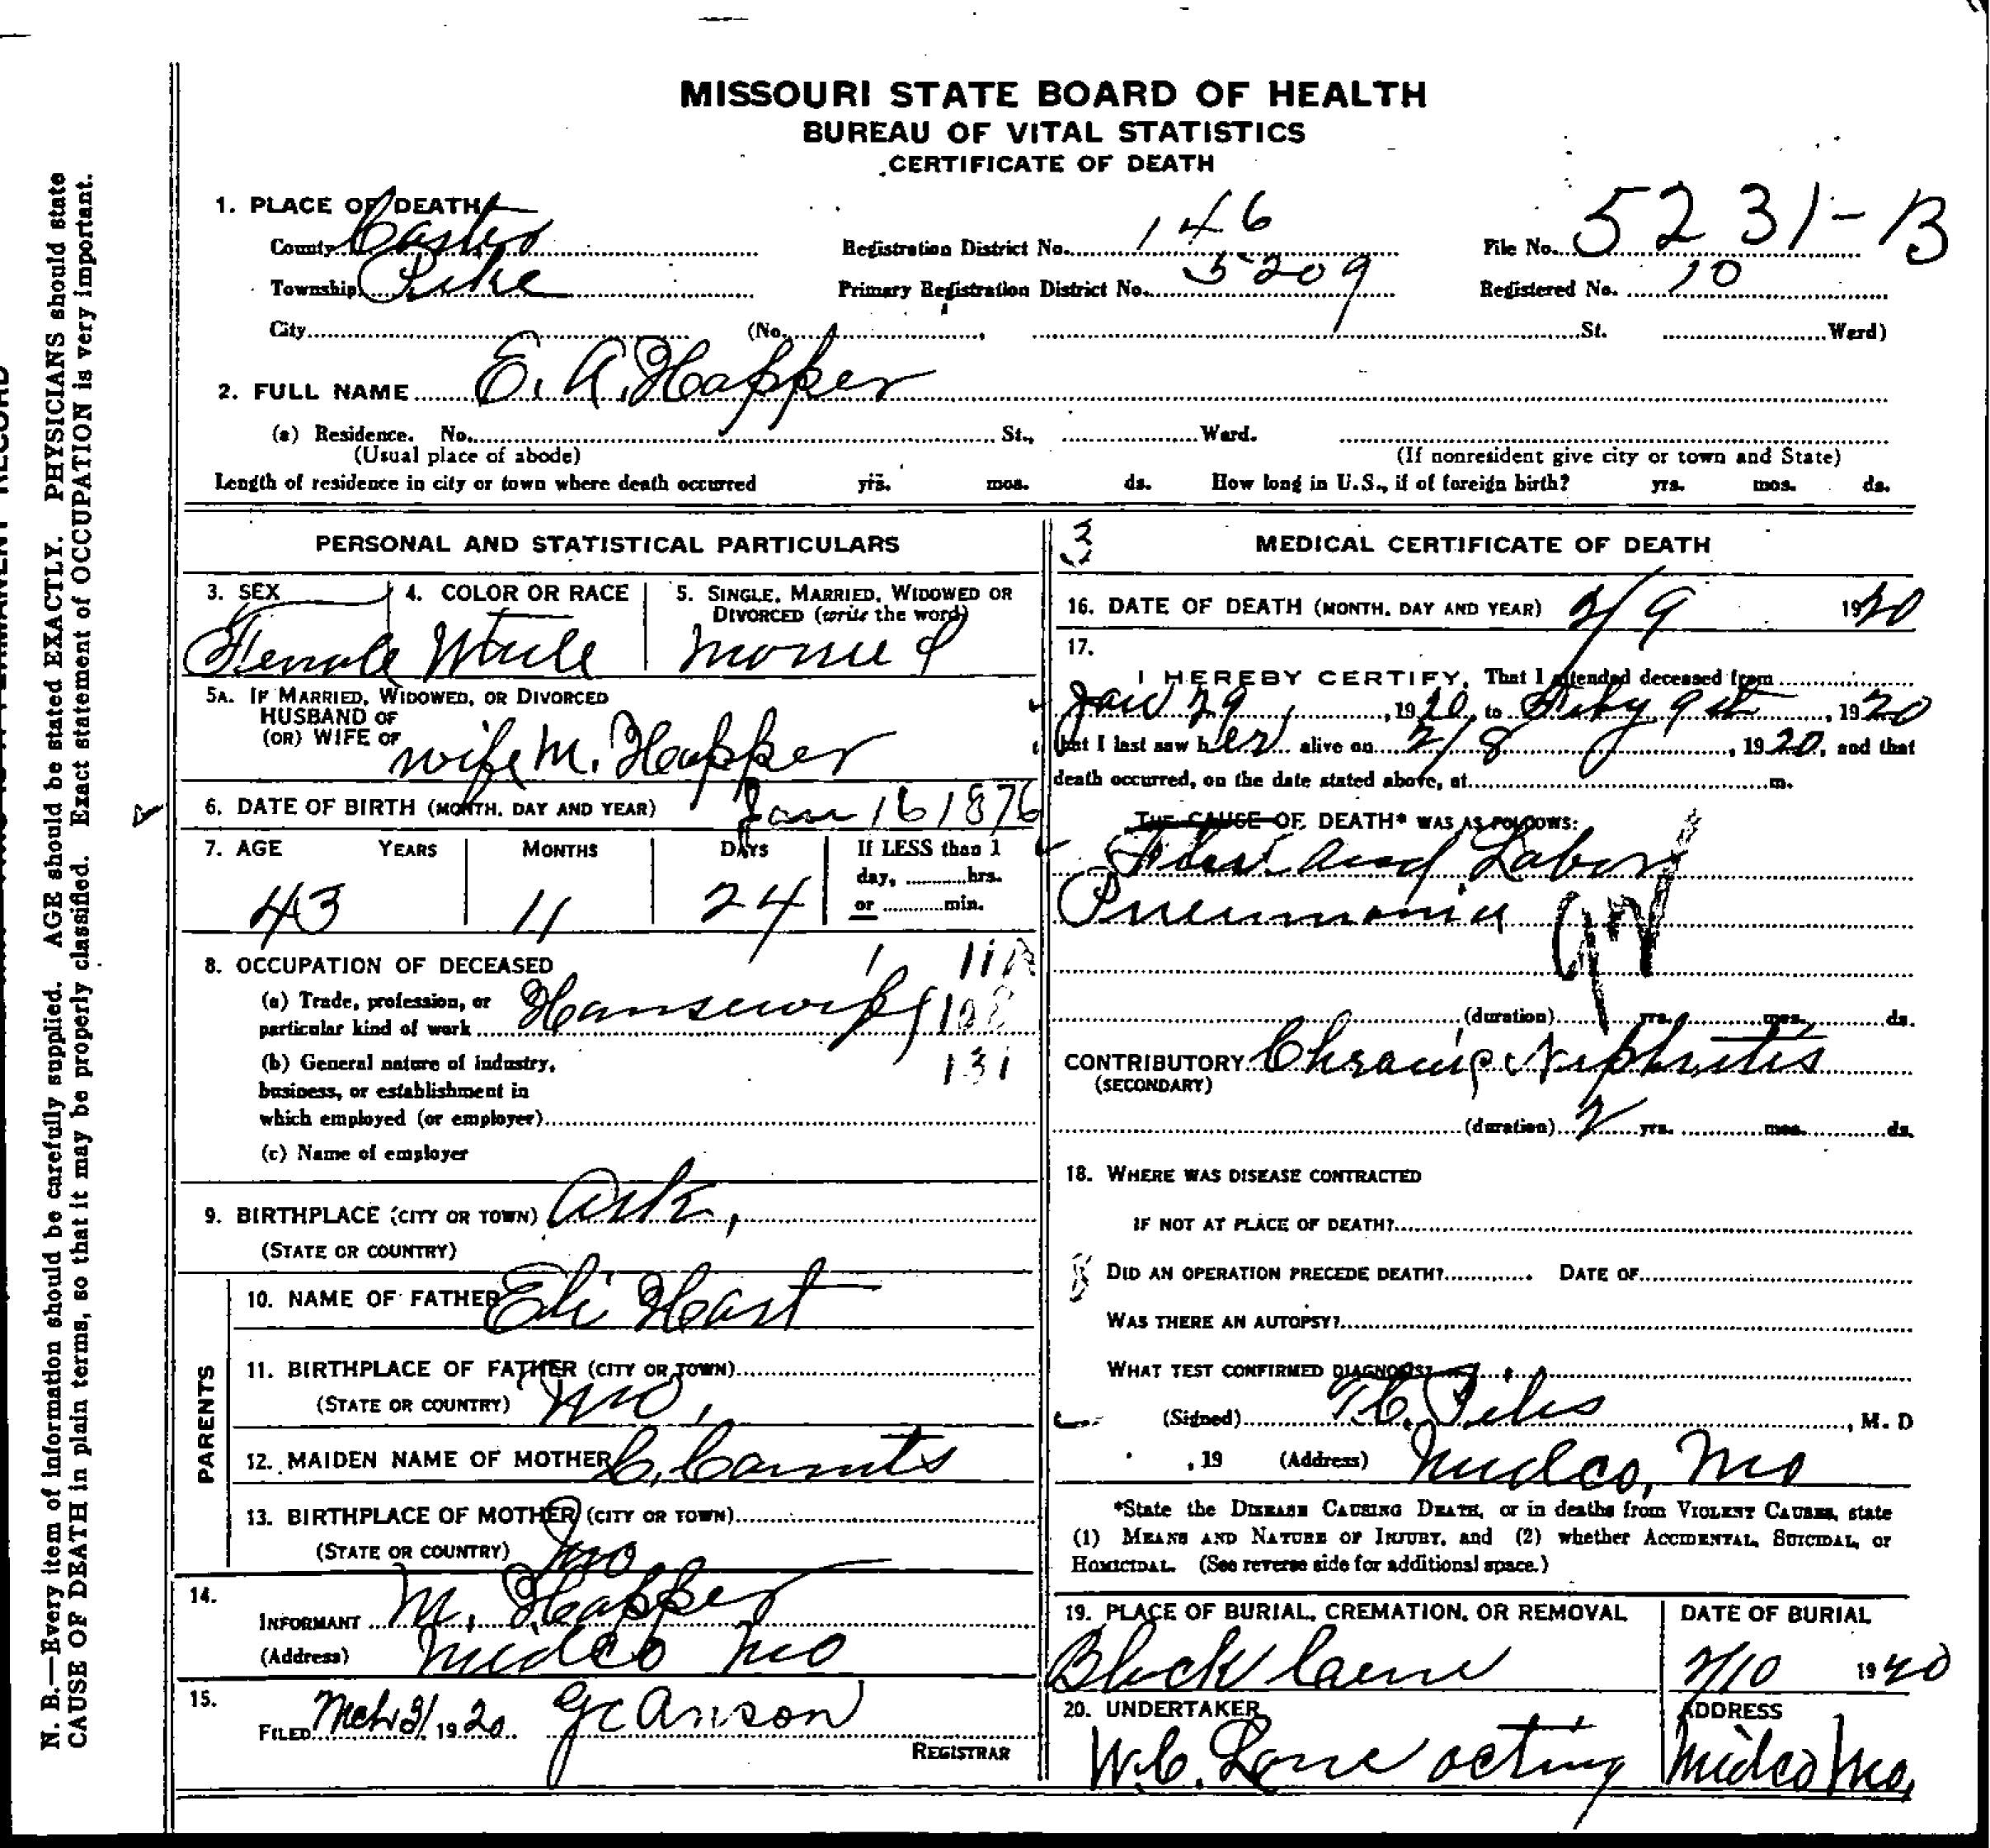 MISSOURI STATE BOARD OF HEALTH
BUREAU OF VITAL STATISTICS
CERTIFICATE OF DEATH
1. PLACE OF DEATH
County Carter Registration District No. 146 File No. 5231-B
Township Pike Primary Registration District No. 5209 Registered No. 10
City (No. , St. Ward)
2. FULL NAME E. A. Happer
(a) Residence. No. St., Ward.
(Usual place of abode) (If nonresident give city or town and State)
Length of residence in city or town where death occurred yrs. mos. ds. How long in U.S., if of foreign birth? yrs. mos. ds.
PERSONAL AND STATISTICAL PARTICULARS
3. SEX 4. COLOR OR RACE 5. SINGLE, MARRIED, WIDOWED OR
DIVORCED (write the word)
Female
5A. IF MARRIED, WIDOWED, OR DIVORCED
HUSBAND OF
(OR) WIFE OF wife M. Happer
6. DATE OF BIRTH (MONTH, DAY AND YEAR) Jan 16 1876
7. AGE YEARS MONTHS DAYS If LESS than 1
day, hrs.
or min.
43 11 24
8. OCCUPATION OF DECEASED
(a) Trade, profession, or
particular kind of work Hansewife
(b) General nature of industry,
business, or establishment in
which employed (or employer)
131
(c) Name of employer
9. BIRTHPLACE (CITY OR TOWN) Ark,
(STATE OR COUNTRY)
PARENTS
10. NAME OF FATHER Eli Hart
11. BIRTHPLACE OF FATHER (CITY OR TOWN)
(STATE OR COUNTRY) Mo,
12. MAIDEN NAME OF MOTHER C.
13. BIRTHPLACE OF MOTHER (CITY OR TOWN)
(STATE OR COUNTRY) Mo
14.
INFORMANT M. Happer
(Address) Midco Mo
15.
FILED Mch 31 1920 G C Anson
REGISTRAR
3
MEDICAL CERTIFICATE OF DEATH
16. DATE OF DEATH (MONTH, DAY AND YEAR) 2/9 1920
17.
I HEREBY CERTIFY, That I attended deceased from
Jan 29, 1920, to Feby 9th, 1920
that I last saw her alive on 2/8, 1920, and that
death occurred, on the date stated above, at m.
THE CAUSE OF DEATH* WAS AS FOLLOWS:
Flu and Labor
Pneumonia
(duration) yrs. mos. ds.
CONTRIBUTORY Chronic Nephritis
(SECONDARY)
(duration) 2 yrs. mos. ds.
18. WHERE WAS DISEASE CONTRACTED
IF NOT AT PLACE OF DEATH?
DID AN OPERATION PRECEDE DEATH? DATE OF
WAS THERE AN AUTOPSY?
WHAT TEST CONFIRMED DIAGNOSIS?
(Signed) , M. D
, 19 (Address) Midco, Mo
*State the DISEASE CAUSING DEATH, or in deaths from VIOLENT CAUSES, state
(1) MEANS AND NATURE OF INJURY, and (2) whether ACCIDENTAL, SUICIDAL, or
HOMICIDAL. (See reverse side for additional space.)
19. PLACE OF BURIAL, CREMATION, OR REMOVAL DATE OF BURIAL
Black 2/10 1920
20. UNDERTAKER ADDRESS
W.C. Lane acting Midco Mo,
N. B.—Every item of information should be carefully supplied. AGE should be stated EXACTLY. PHYSICIANS should state
CAUSE OF DEATH in plain terms, so that it may be properly classified. Exact statement of OCCUPATION is very important.